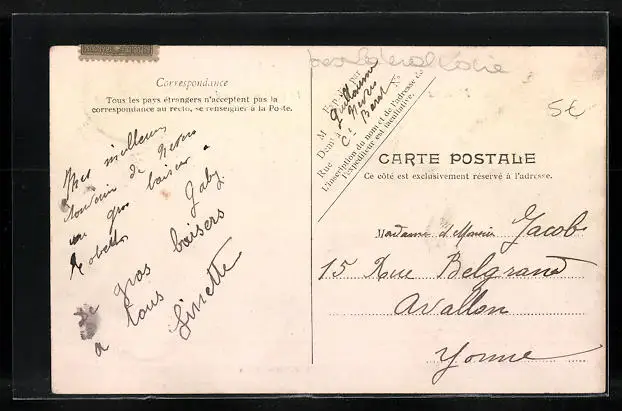 Correspondance
Tous les pays étrangers n'acceptent pas la
correspondance au recto, se renseigner à la Poste.
Mes meilleurs
souvenir de Nevers
un gros baiser a
Gaby
de gros baisers
a tous
Ginette
M Guillaume
Nevers
Rue
L'inscription du nom et de l'adresse de
l'expéditeur est facultative.
5€
CARTE POSTALE
Ce côté est exclusivement réservé à l'adresse.
Madame et Monsieur Jacob
15 Rue Belgrand
Avallon
Yonne